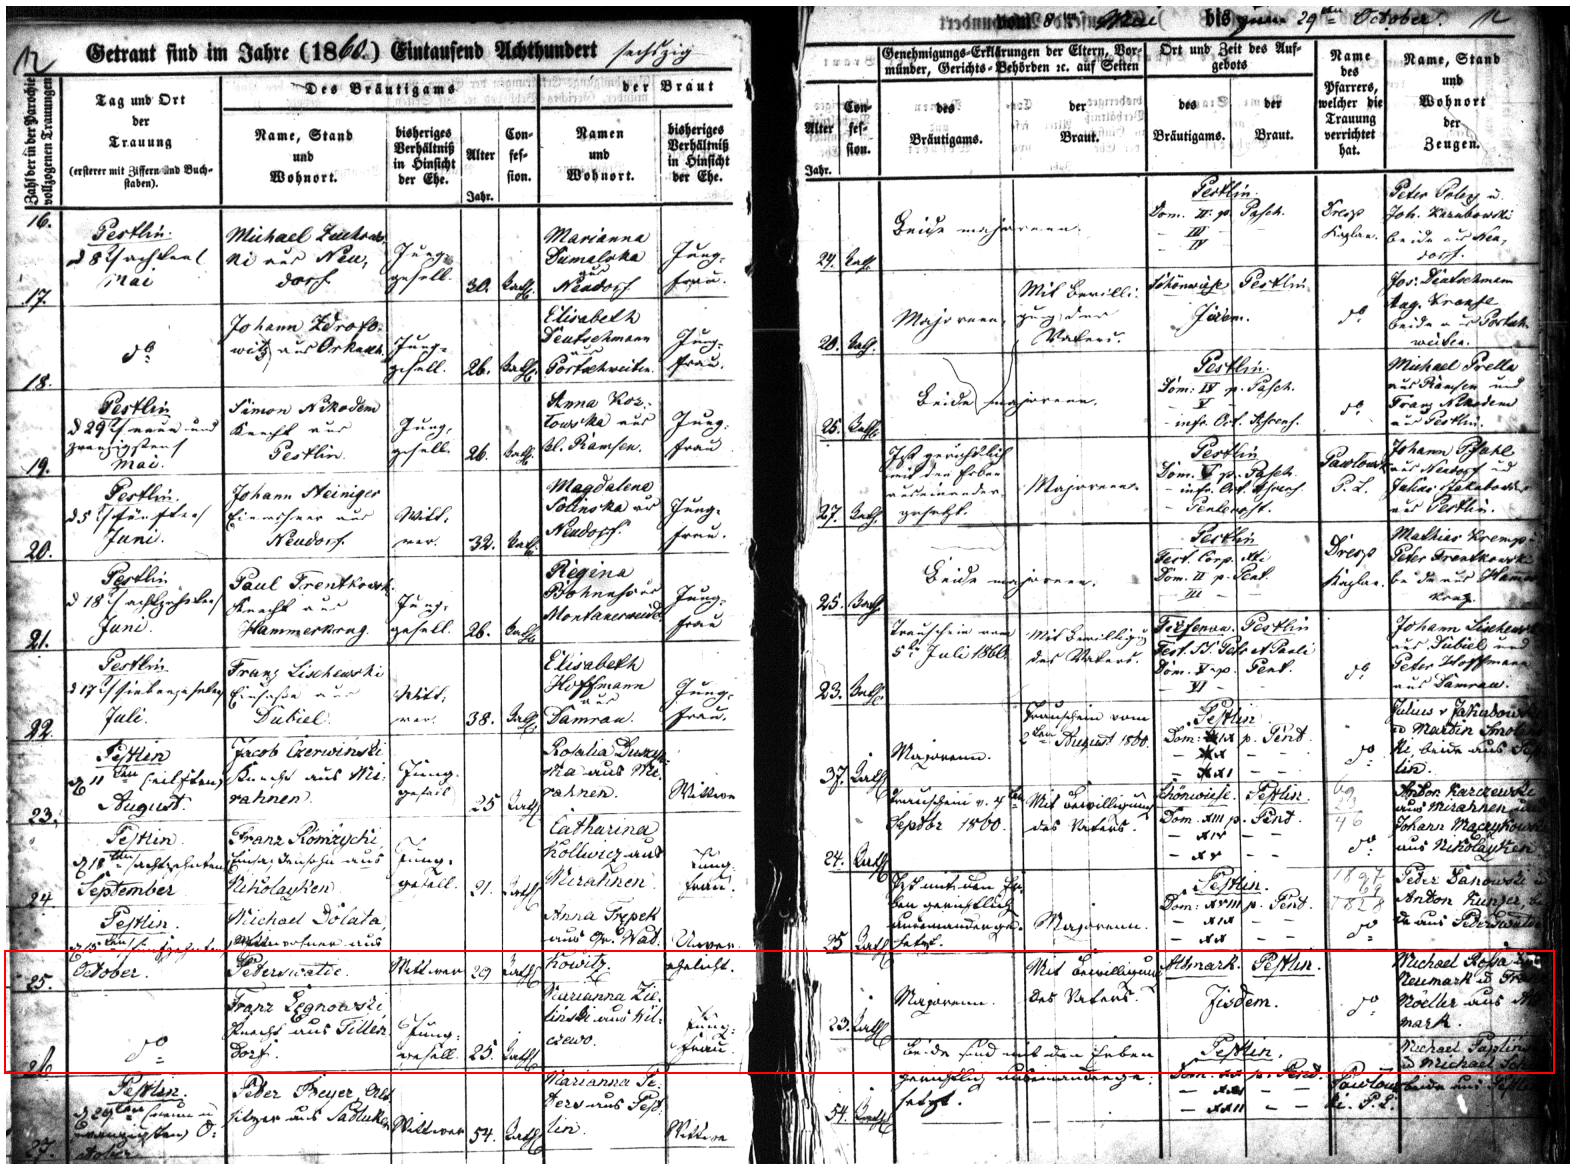 12
Getraut sind im Jahre (1860.) Eintausend Achthundert sechszig
Zahl der in der Parochie vollzogenen Trauungen
Tag und Ort
der
Trauung
(ersterer mit Ziffern und Buch-
staben).
Des Bräutigams
Name, Stand
und
Wohnort.
bisheriges
Verhältniß
in Hinsicht
der Ehe.
Alter
Jahr.
Con-
fes-
sion.
der Braut
Namen
und
Wohnort.
bisheriges
Verhältniß
in Hinsicht
der Ehe.
16.
Pestlin.
d 8 (achten)
Mai
Michael
ki aus Neu,
dorf
Jung-
gesell.
30.
Kath.
Marianna
Dumalska
aus
Neudorf
Jung-
frau.
17.
do
Johann Zdrojo-
witz aus
Jung-
gesell.
26.
Kath.
Elisabeth
Deutschmann
aus
Portschweiten
Jung-
frau.
18.
Pestlin
d 29 (neun und
zwanzigsten)
Mai.
Simon Nikodem
Knecht aus
Pestlin
Jung-
gesell.
26.
Kath.
Anna Koz-
lowska aus
Kl. Ramsen.
Jung-
frau
19.
Pestlin.
d 5 (fünften)
Juni.
Johann Steiniger
Einwohner aus
Neudorf
Witt-
wer.
32.
Kath.
Magdalena
Solinska aus
Neudorf.
Jung-
frau.
20.
Pestlin
d 18 (achtzehnten)
Juni.
Paul Trentkowski
Knecht aus
Hammerkrug.
Jung-
gesell.
26.
Kath.
Regina
aus
Montauerweide
Jung-
frau
21.
Pestlin
d 17 (siebenzehnten)
Juli.
Franz Lischewski
Einsaße aus
Dubiel.
Witt-
wer.
38.
Kath.
Elisabeth
Hoffmann
aus
Damrau.
Jung-
frau.
22.
Pestlin
d 11ten (eilften)
August.
Jacob Czerwinski
Knecht aus Mi-
rahnen.
Jung-
gesell
25
Kath
Rosalia
ska aus Mi-
rahnen.
Wittwe
23.
Pestlin.
d 18ten (achtzehnten)
September
Franz Komzycki,
Einsaßensohn aus
Nikolayken.
Jung-
gesell.
21.
Kath
Catharina
Kollwicz aus
Mirahnen.
Jung-
frau.
24
Pestlin.
d 15ten (fünfzehnten)
October.
Michael Dolata,
Einwohner aus
Peterswalde.
Wittwer
29
Kath
Anna Trzpek
aus Gr. Wat-
kowitz.
Unver-
ehelicht.
25.
do
Franz Legnowski,
Knecht aus Tillen-
dorf.
Jung-
gesell.
25.
Kath
Marianna Zie-
linski aus Wil-
czewo.
Jung-
frau.
26
Pestlin.
d 29ten (neun u
zwanzigsten) O-
ctober
Peter Preyer,
sitzer aus Sadluken
Wittwer
54.
Kath
Marianna Pe-
ters aus Pest-
lin.
Wittwe
27.
vom 8ten Mai bis zum 29ten October. 12
Alter
Jahr.
Con-
fes-
sion.
Genehmigungs-Erklärungen der Eltern, Vor-
münder, Gerichts-Behörden ec. auf Seiten
des
Bräutigams.
der
Braut.
Ort und Zeit des Auf-
gebots
des
Bräutigams.
der
Braut.
Name
des
Pfarrers,
welcher die
Trauung
verrichtet
hat.
Name, Stand
und
Wohnort
der
Zeugen.
24.
Kath.
Beide majorenn.
Pestlin.
Dom. II. p. Pasch.
— III
— IV
Dresp
Kaplan.
Peter Poley u.
Joh.
beide aus Neu-
dorf.
20.
Kath.
Majorenn,
Mit Bewilli-
gung des
Vaters.
Schönwiese Pestlin
do
Jos: Deutschmann
Aug. Krause
beide aus Portsch-
weiten.
26.
Kath.
Beide majorenn.
Pestlin.
Dom: IV p. Pasch.
— V
— infr. Oct. Ascens.
do
Michael Prella
aus Ramsen und
Franz Nikodem
aus Pestlin.
27.
Kath.
Ist gerichtlich
mit den Erben
auseinander-
gesetzt.
Majorenn.
Pestlin
Dom. V p. Pasch.
— infr. Oct. Ascens
— Pentecost.
Pawlowski
P. L.
Johann Pfahl
aus Neudorf und
Julius Jakubowski
aus Pestlin.
25.
Kath.
Beide majorenn.
Pestlin
Fest. Corp. Xti
Dom. II p. Pent.
— III — —
Dresp
Kaplan.
Mathias
Peter Trentkowski
beide aus Hammer-
krug.
23.
Kath.
Trauschein vom
5ten Juli 1860.
Mit Bewilligung
des Vaters.
Pestlin
Fest. SS. Petr et Pauli
Dom. V p. Pent.
— VI — —
do
Johann Lischewski
aus Dubiel und
Peter Hoffmann
aus Damrau.
37.
Kath
Majorenn.
Trauschein vom
2ten August 1860.
Pestlin
Dom: IX p. Pent
— X — —
— XI — —
do
Julius v Jakubowski
u Martin
ki beide aus Pest-
lin.
24.
Kath
Trauschein v. 4ten
Septbr 1860.
Mit Bewilligung
des Vaters.
Schönwiese. Pestlin.
Dom: XIII p. Pent.
— XIV — —
— XV — —
do
Anton Karczewski
aus Mirahnen und
Johann Maczykowski
aus Nikolayken
25
Kath
Ist mit den Er-
ben gerichtlich
auseinanderge-
setzt.
Majorenn.
Pestlin.
Dom: XVIII p. Pent.
— XIX — —
— XX — —
1897
69
1828
do
Peter Janowski u
Anton Kunzer, bei-
de aus Peterswalde
23.
Kath
Majorenn.
Mit Bewilligung
des Vaters.
Altmark. Pestlin.
do
Michael Rossa aus
Neumark u. Franz
Moeller aus Alt-
mark.
54.
Kath
Beide sind mit den Erben
gerichtlich auseinanderge-
setzt.
Pestlin.
Dom. XX p. Pent.
— XXI — —
— XXII — —
Pawlows-
ki. P. L.
Michael
u Michael
beide aus Pestlin